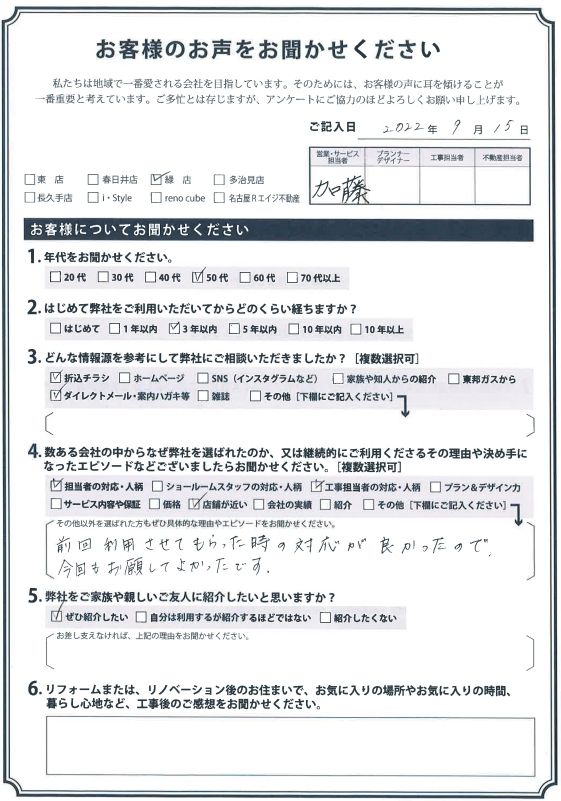 お客様のお声をお聞かせください
私たちは地域で一番愛される会社を目指しています。そのためには、お客様の声に耳を傾けることが
一番重要と考えています。ご多忙とは存じますが、アンケートにご協力のほどよろしくお願い申し上げます。
ご記入日 2022年 9月 15日
営業・サービス担当者 プランナーデザイナー 工事担当者 不動産担当者
加藤
□東 店 □春日井店 ☑緑 店 □多治見店
□長久手店 □i・Style □reno cube □名古屋Rエイジ不動産
お客様についてお聞かせください
1. 年代をお聞かせください。
□20代 □30代 □40代 ☑50代 □60代 □70代以上
2. はじめて弊社をご利用いただいてからどのくらい経ちますか?
□はじめて □1年以内 ☑3年以内 □5年以内 □10年以内 □10年以上
3. どんな情報源を参考にして弊社にご相談いただきましたか?[複数選択可]
☑折込チラシ □ホームページ □SNS(インスタグラムなど) □家族や知人からの紹介 □東邦ガスから
☑ダイレクトメール・案内ハガキ等 □雑誌 □その他[下欄にご記入ください]
4. 数ある会社の中からなぜ弊社を選ばれたのか、又は継続的にご利用くださるその理由や決め手に
なったエピソードなどございましたらお聞かせください。[複数選択可]
☑担当者の対応・人柄 □ショールームスタッフの対応・人柄 ☑工事担当者の対応・人柄 □プラン&デザイン力
□サービス内容や保証 □価格 ☑店舗が近い □会社の実績 □紹介 □その他[下欄にご記入ください]
その他以外を選ばれた方もぜひ具体的な理由やエピソードをお聞かせください。
前回利用させてもらった時の対応が良かったので、
今回もお願してよかったです.
5. 弊社をご家族や親しいご友人に紹介したいと思いますか?
☑ぜひ紹介したい □自分は利用するが紹介するほどではない □紹介したくない
お差し支えなければ、上記の理由をお聞かせください。
6. リフォームまたは、リノベーション後のお住まいで、お気に入りの場所やお気に入りの時間、
暮らし心地など、工事後のご感想をお聞かせください。